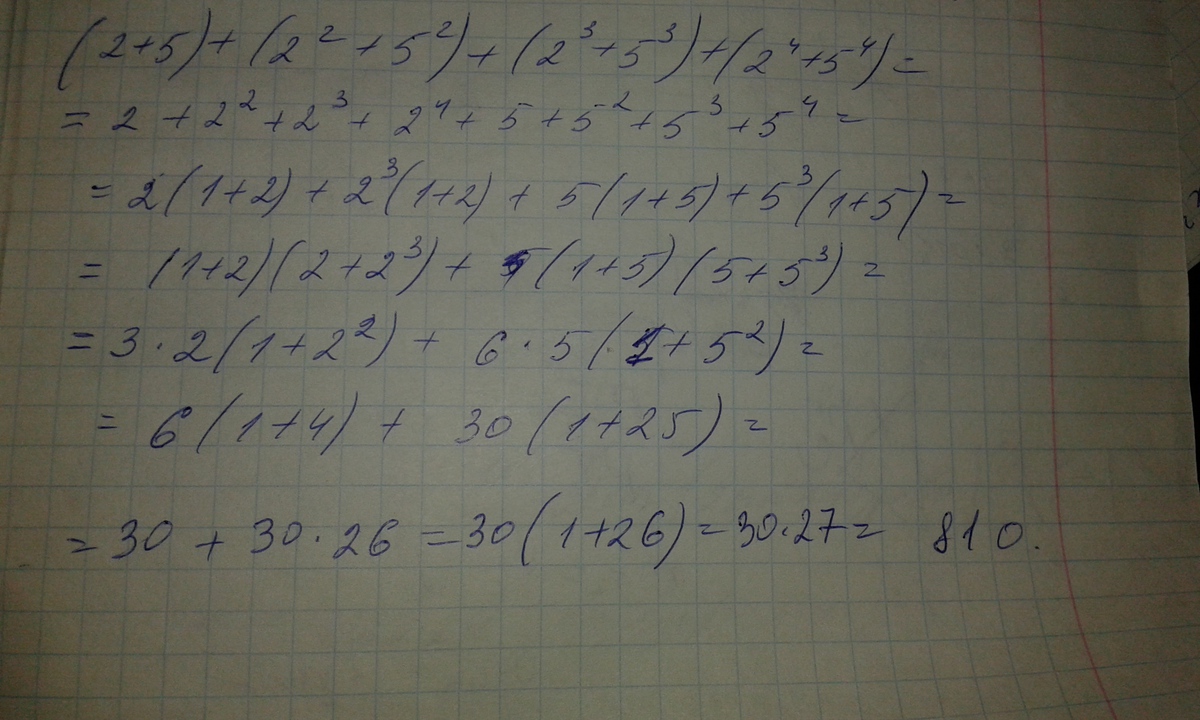 (2+5)+(2²+5²)+(2³+5³)+(2⁴+5⁴)=
=2+2²+2³+2⁴+5+5²+5³+5⁴=
=2(1+2)+2³(1+2)+5(1+5)+5³(1+5)=
=(1+2)(2+2³)+(1+5)(5+5³)=
=3·2(1+2²)+6·5(1+5²)=
=6(1+4)+30(1+25)=
=30+30·26=30(1+26)=30·27=810.